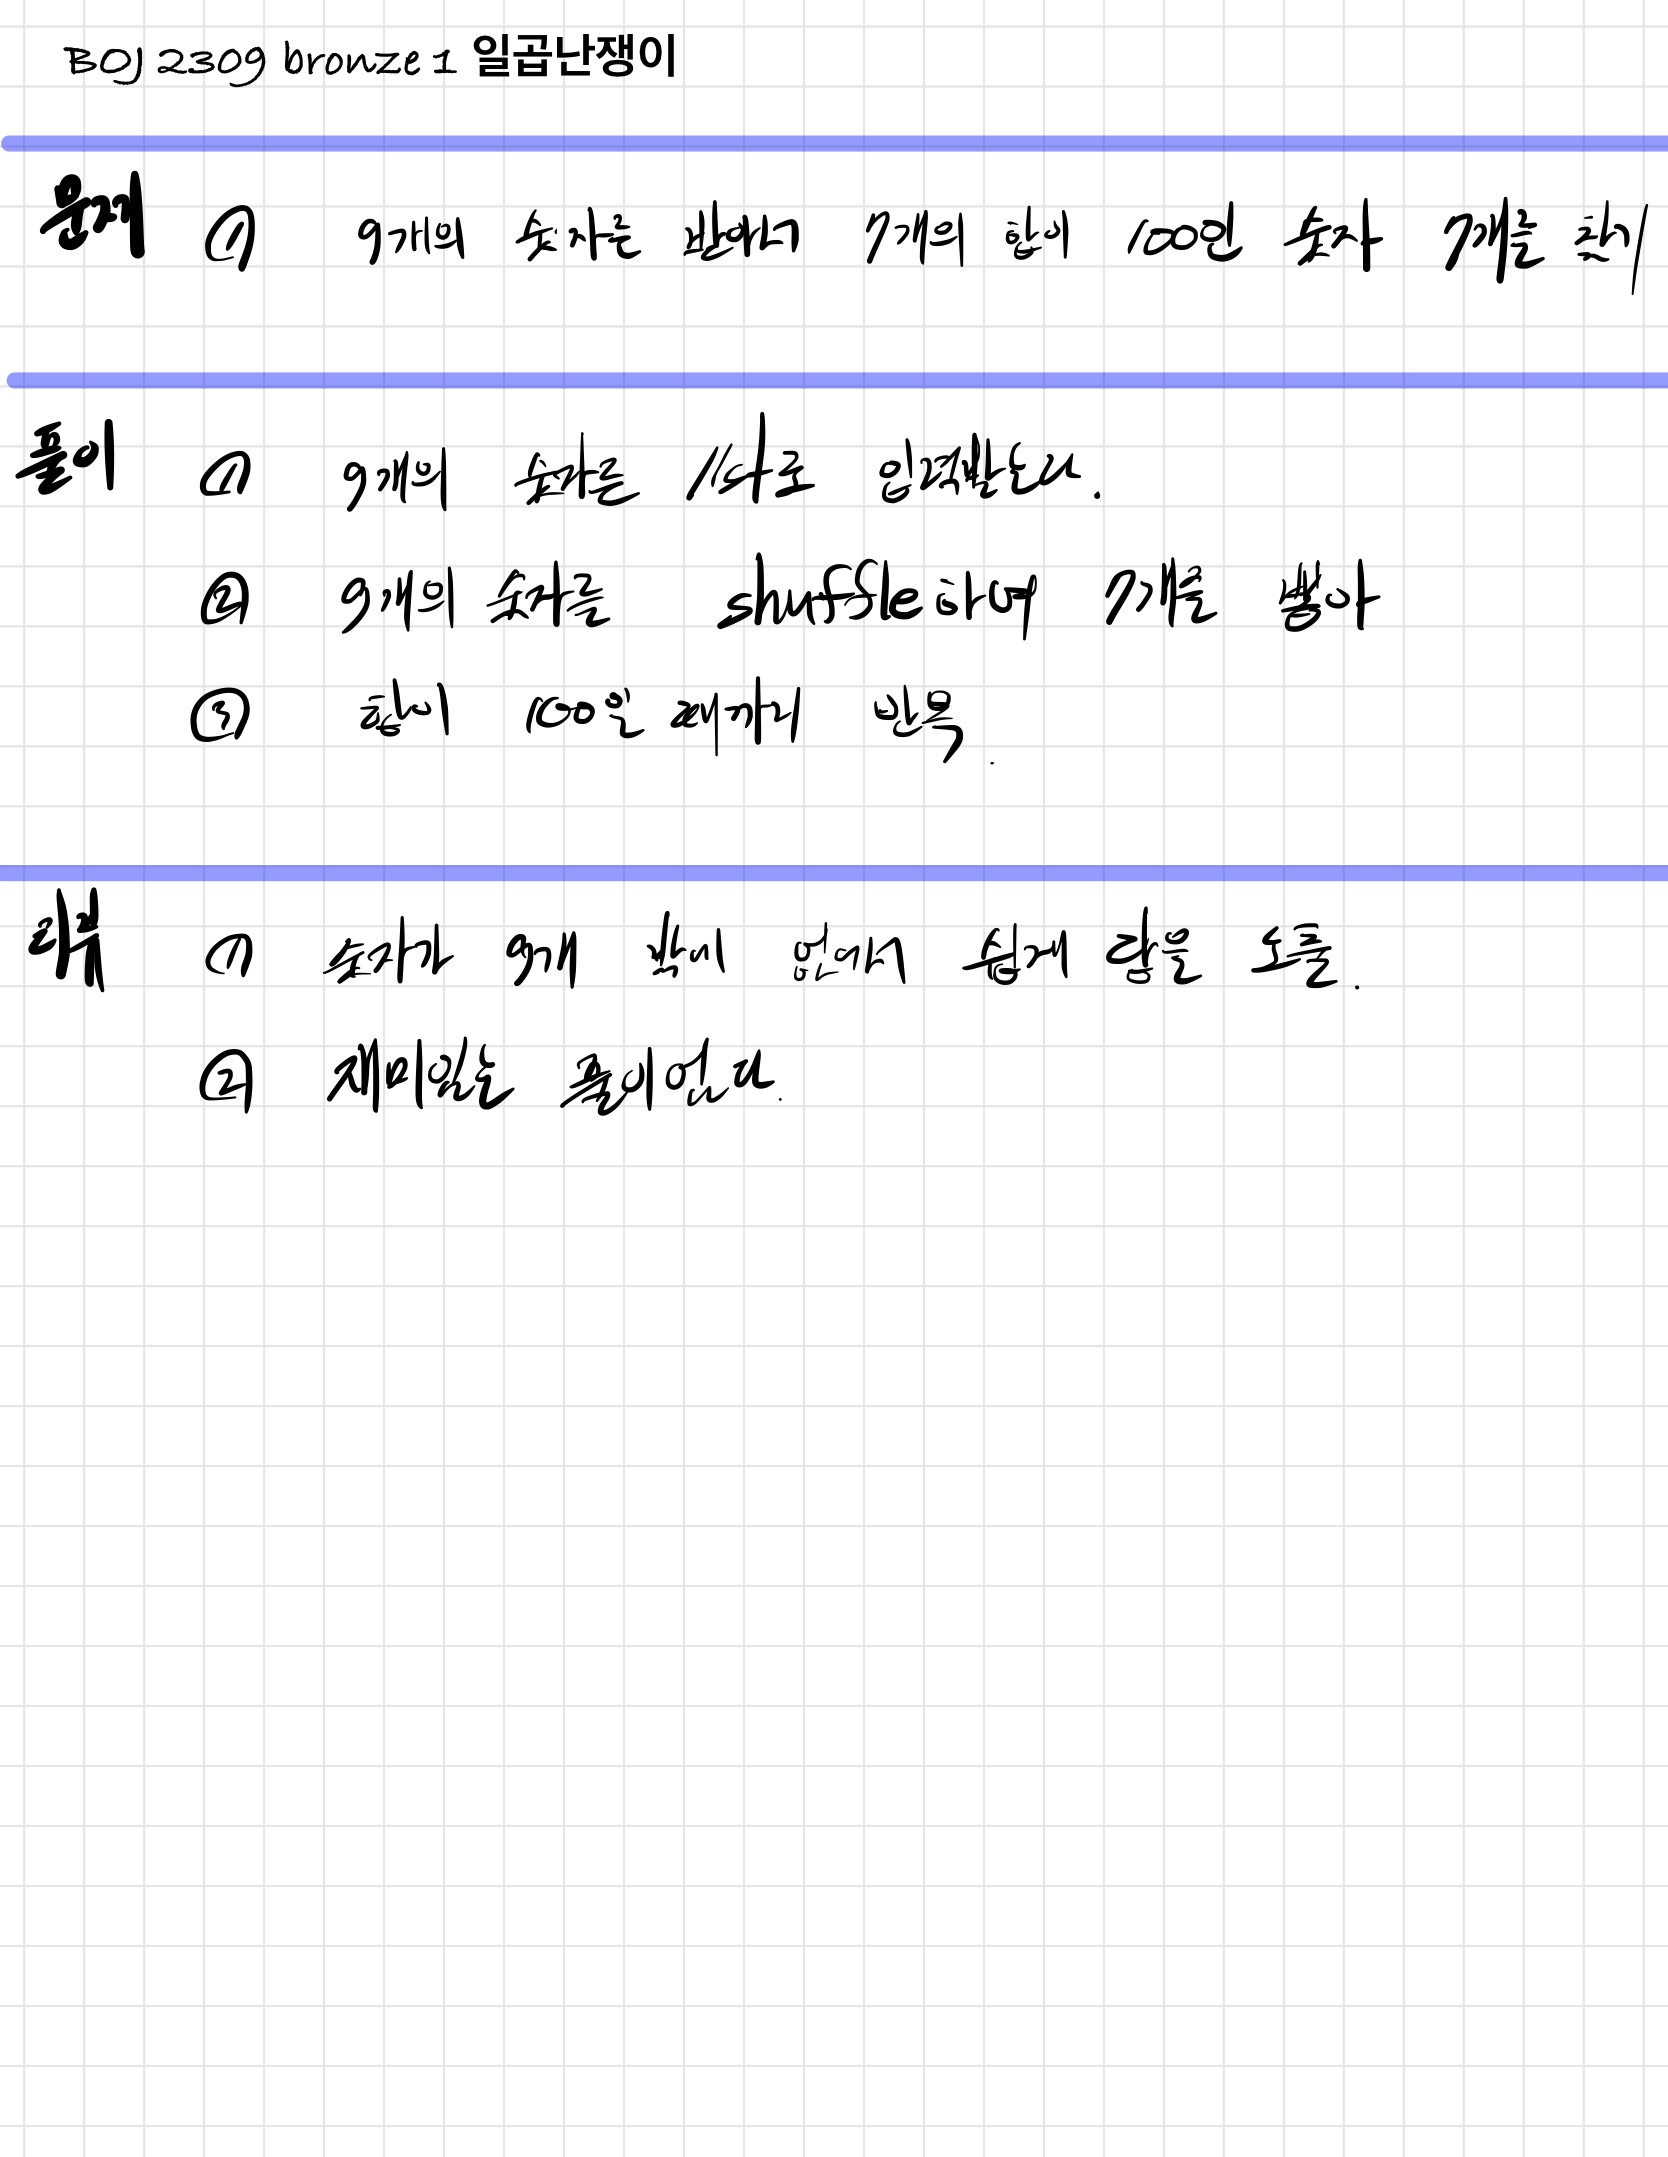 BOJ 2309 bronze 1 일곱난쟁이
문제 ① 9개의 숫자를 받아서 7개의 합이 100인 숫자 7개를 찾기
풀이 ① 9개의 숫자를 입력받는다.
② 9개의 숫자를 shuffle하여 7개를 뽑아
③ 합이 100일 때까지 반복.
리뷰 ① 숫자가 9개 밖에 없어서 쉽게 답을 도출.
② 재미있는 풀이였다.